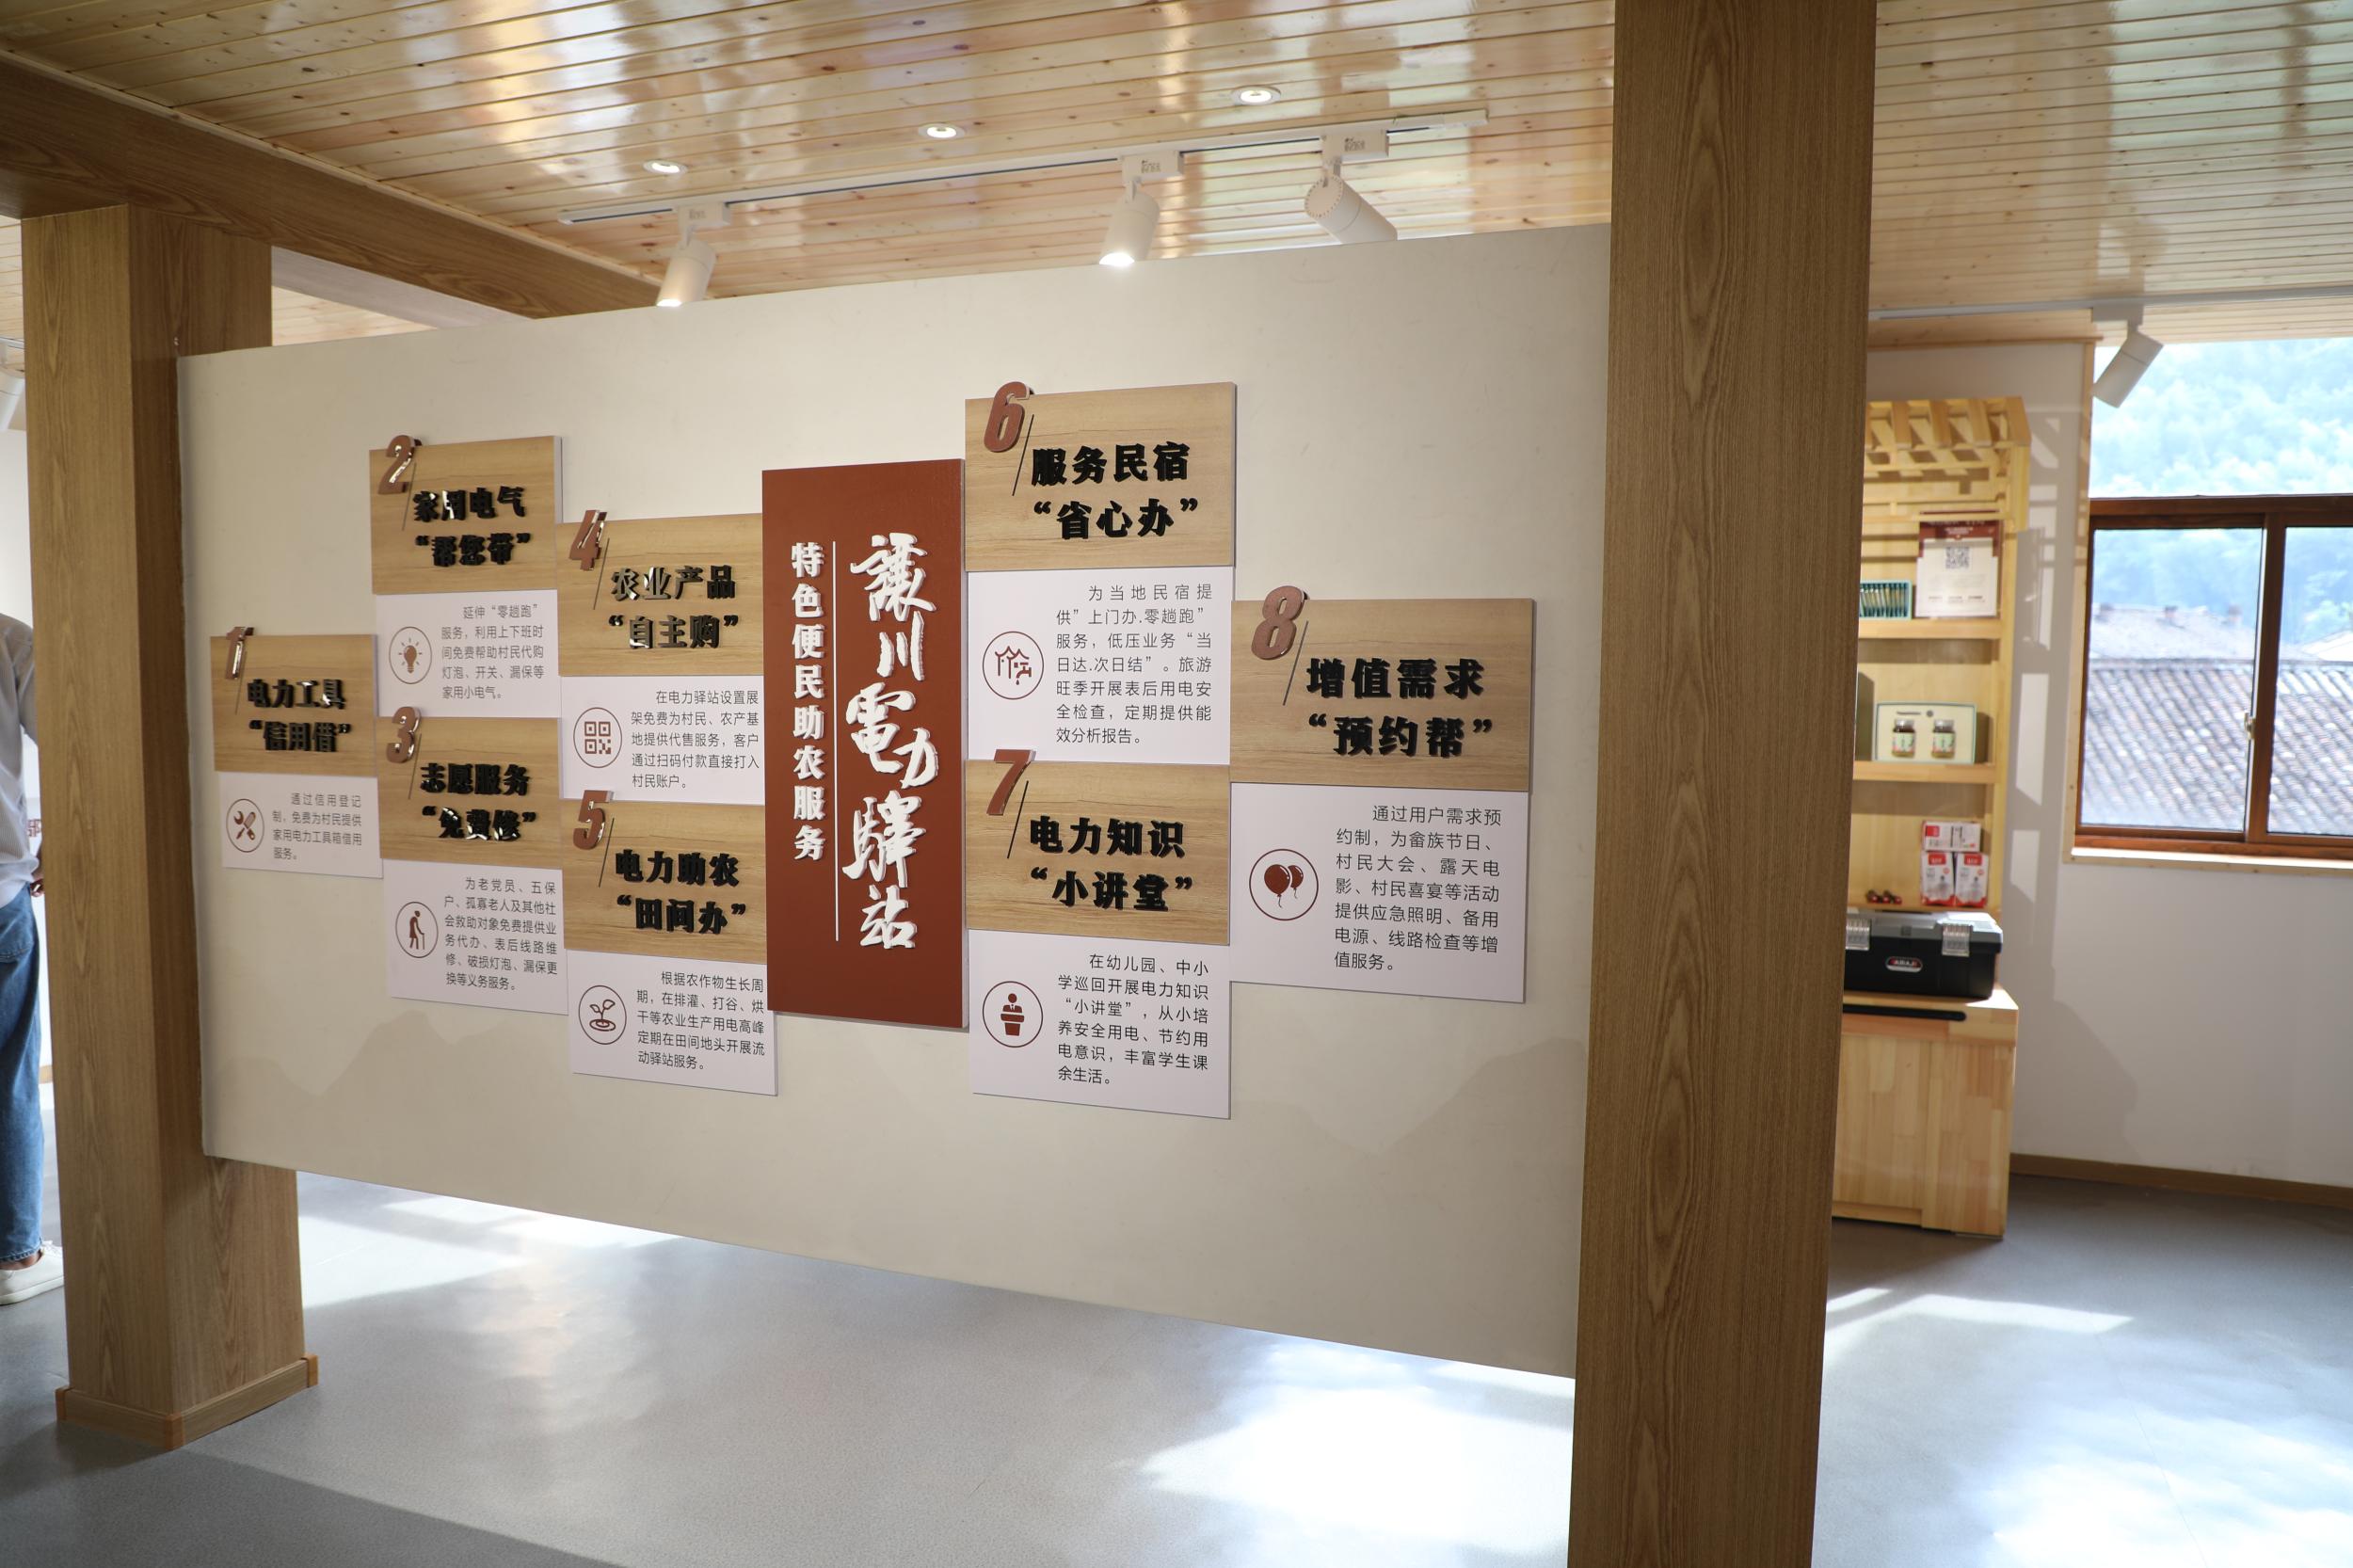 1
电力工具
“信用借”
通过信用登记
制，免费为村民提供
家用电力工具箱借用
服务。
2
家用电气
“帮您带”
延伸“零趟跑”
服务，利用上下班时
间免费帮助村民代购
灯泡、开关、漏保等
家用小电气。
3
志愿服务
“免费修”
为老党员、五保
户、孤寡老人及其他社
会救助对象免费提供业
务代办、表后线路维
修、破损灯泡、漏保更
换等义务服务。
4
农业产品
“自主购”
在电力驿站设置展
架免费为村民、农产基
地提供代售服务，客户
通过扫码付款直接打入
村民账户。
5
电力助农
“田间办”
根据农作物生长周
期，在排灌、打谷、烘
干等农业生产用电高峰
定期在田间地头开展流
动驿站服务。
川電力驛站
特色便民助农服务
6
服务民宿
“省心办”
为当地民宿提
供”上门办.零趟跑”
服务，低压业务“当
日达.次日结”。旅游
旺季开展表后用电安
全检查，定期提供能
效分析报告。
7
电力知识
“小讲堂”
在幼儿园、中小
学巡回开展电力知识
“小讲堂”，从小培
养安全用电、节约用
电意识，丰富学生课
余生活。
8
增值需求
“预约帮”
通过用户需求预
约制，为畲族节日、
村民大会、露天电
影、村民喜宴等活动
提供应急照明、备用
电源、线路检查等增
值服务。